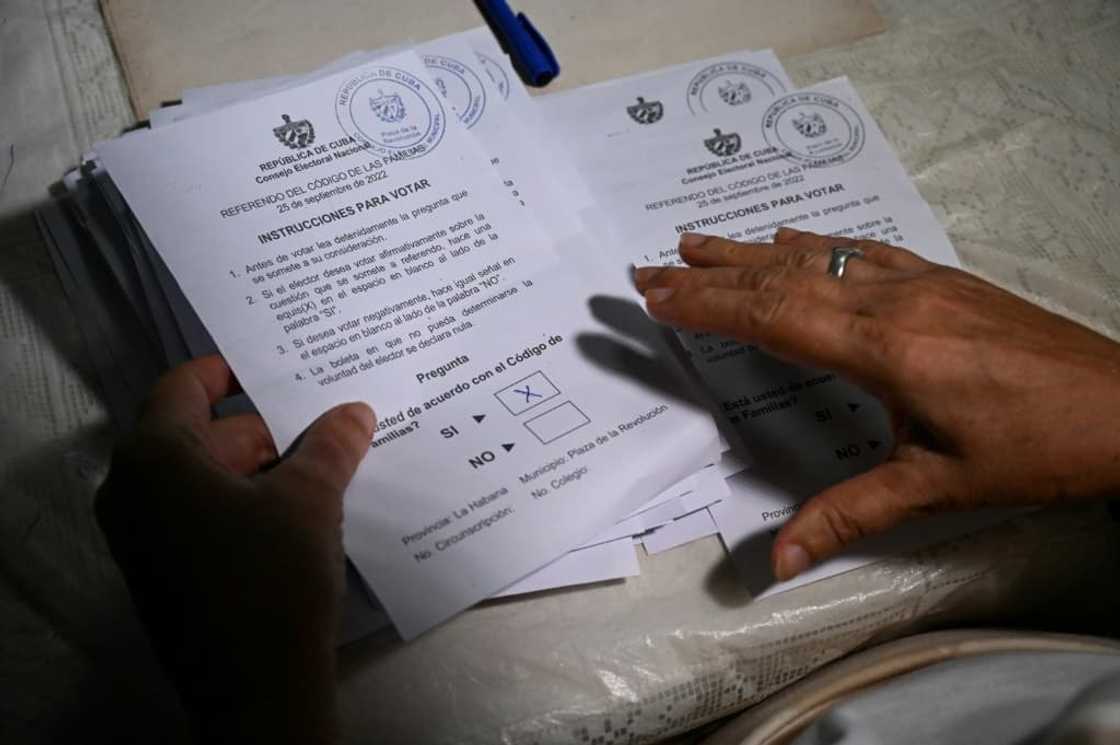 REPÚBLICA DE CUBA
Consejo Electoral Nacional
REFERENDO DEL CÓDIGO DE LAS FAMILIAS
25 de septiembre de 2022
INSTRUCCIONES PARA VOTAR
1. Antes de votar lea detenidamente la pregunta que
se somete a su consideración.
2. Si el elector desea votar afirmativamente sobre la
cuestión que se somete a referendo, hace una
equis(X) en el espacio en blanco al lado de la
palabra "SI".
3. Si desea votar negativamente, hace igual señal en
el espacio en blanco al lado de la palabra "NO".
4. La boleta en que no pueda determinarse la
voluntad del elector se declara nula.
Pregunta
usted de acuerdo con el Código de
amilias?
SI
X
NO
Provincia: La Habana Municipio: Plaza de la Revolución
No. Circunscripción: No. Colegio:
REPÚBLICA DE CUBA
Plaza de la
Revolución
REPÚBLICA DE CUBA
Consejo Electoral Nacional
REFERENDO DEL CÓDIGO DE LAS FAMILIAS
25 de septiembre de 2022
INSTRUCCIONES PARA VOTAR
1. lea detenidamente la pregunta que
sobre la
hace una
de la
Está usted de acuer
Familias?
SI
NO
REPÚBLICA DE CUBA